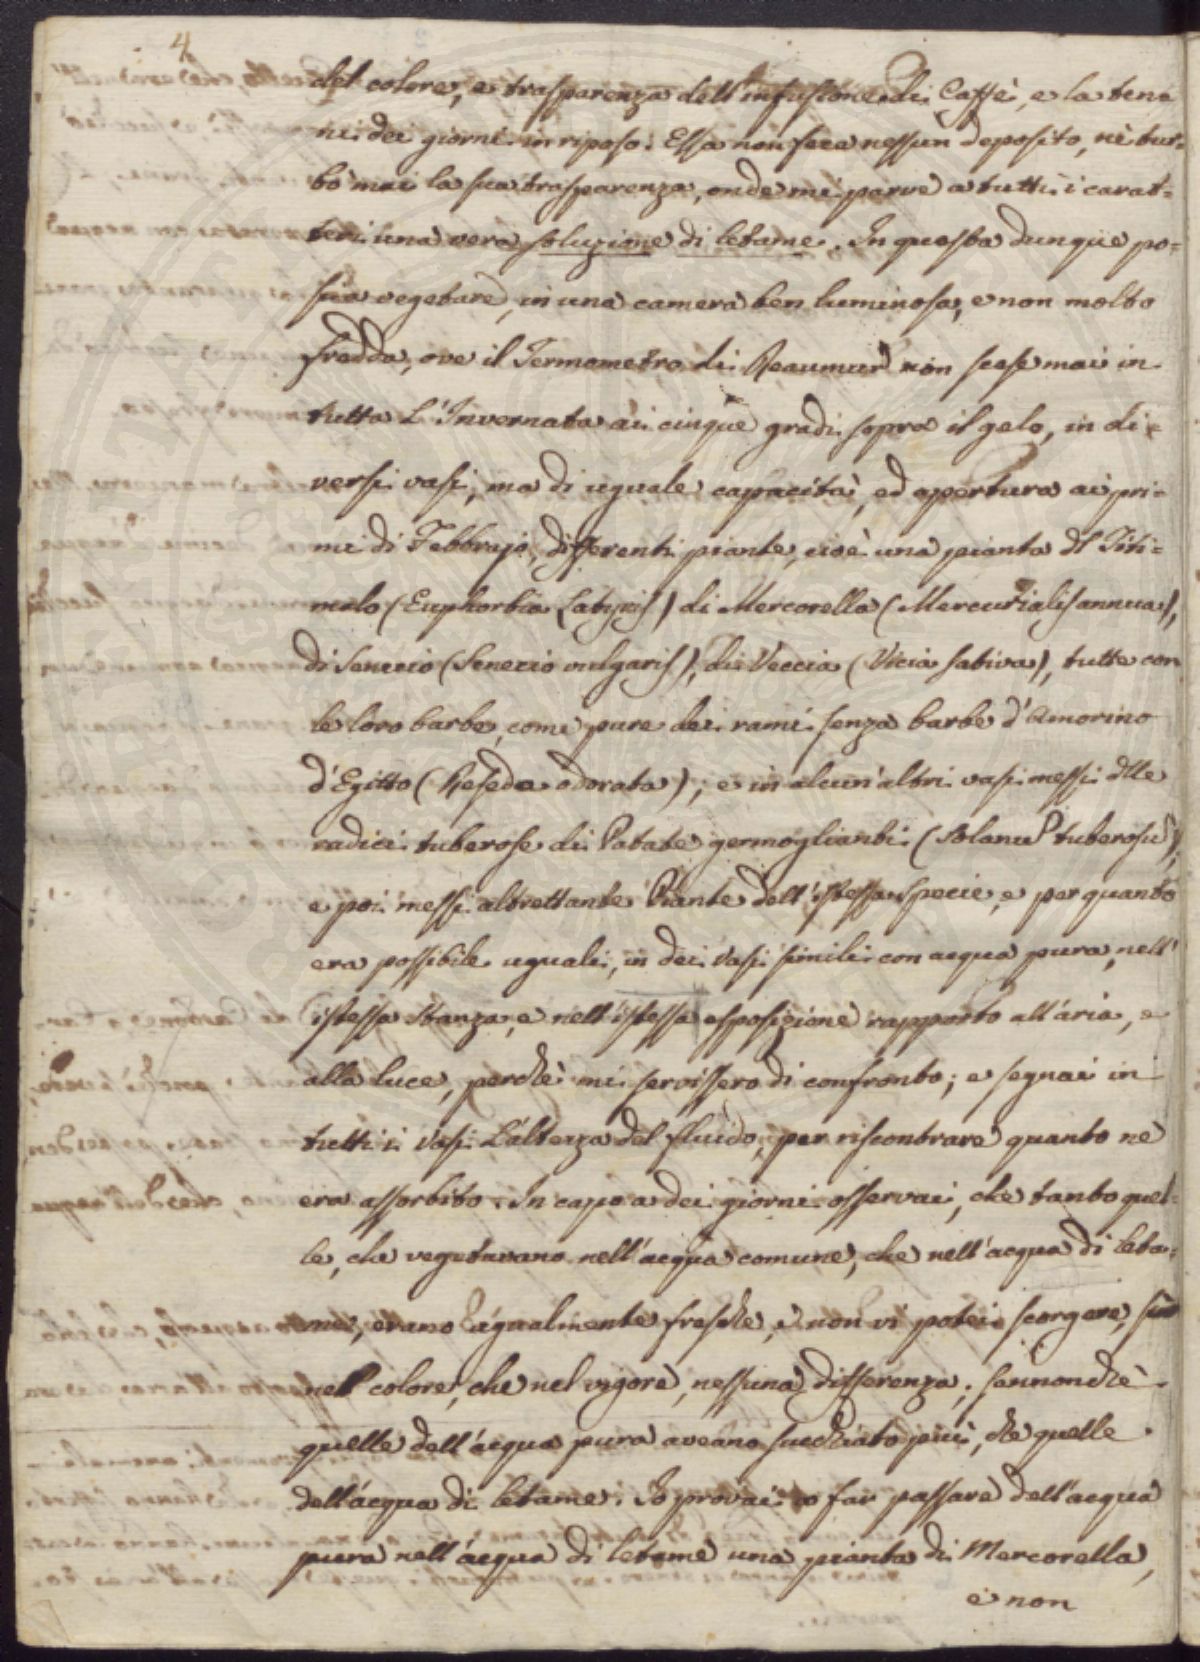 4
del colore, e trasparenza dell'infusione di Caffè, e la ten=
ni dei giorni in riposo. Essa non fece nessun deposito, nè tur=
bò mai la sua trasparenza, onde mi parve a tutti i carat=
teri una vera soluzione di letame. In questa dunque po=
si a vegetare, in una camera ben luminosa, e non molto
fredda, ove il Termometro di Reaumur non scese mai in
tutta l'Invernata ai cinque gradi sopra il gelo, in di=
versi vasi, ma di uguale capacità, ed apertura ai pri=
mi di Febbrajo, differenti piante, cioè una pianta di Titi=
malo (Euphorbia Latyris) di Mercorella (Mercurialis annua),
di Senecio (Senecio vulgaris), di Veccia (Vicia sativa), tutte con
le loro barbe, come pure dei rami senza barbe d'Amorino
d'Egitto (Reseda odorata); e in alcun'altri vasi messi dlle
radici tuberose di Patate germoglianti (Solanu tuberosu),
e poi messi altrettante Piante dell'istessa specie, e per quanto
era possibile uguali, in dei vasi simili con acqua pura, nell'
istessa stanza, e nell'istessa esposizione rapporto all'aria, e
alla luce, perchè mi servissero di confronto; e segnai in
tutti i vasi l'altezza del fluido, per riscontrare quanto ne
era assorbito. In capo a dei giorni osservai, che tanto quel=
le, che vegetavano nell'acqua comune, che nell'acqua di leta=
me, erano egualmente fresche, e non vi potei scorgere, sì
nel colore, che nel vigore, nessuna differenza; sennonchè
quelle dell'acqua pura aveano succhiato più, che quelle
dell'acqua di letame. Io provai a far passare dell'acqua
pura nell'acqua di letame una pianta di Mercorella,
e non